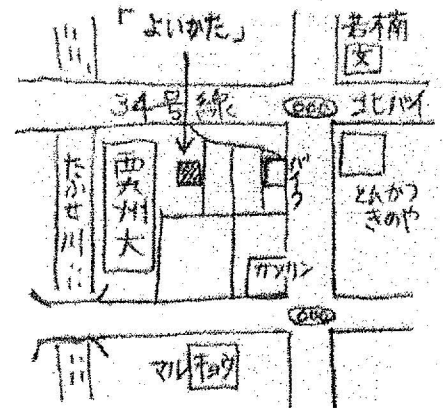 「よいかた」
若楠
交
34号線
北バイ
たふせ川
西九州大
バイク
とんかつ
きのや
ガソリン
マルキョウ